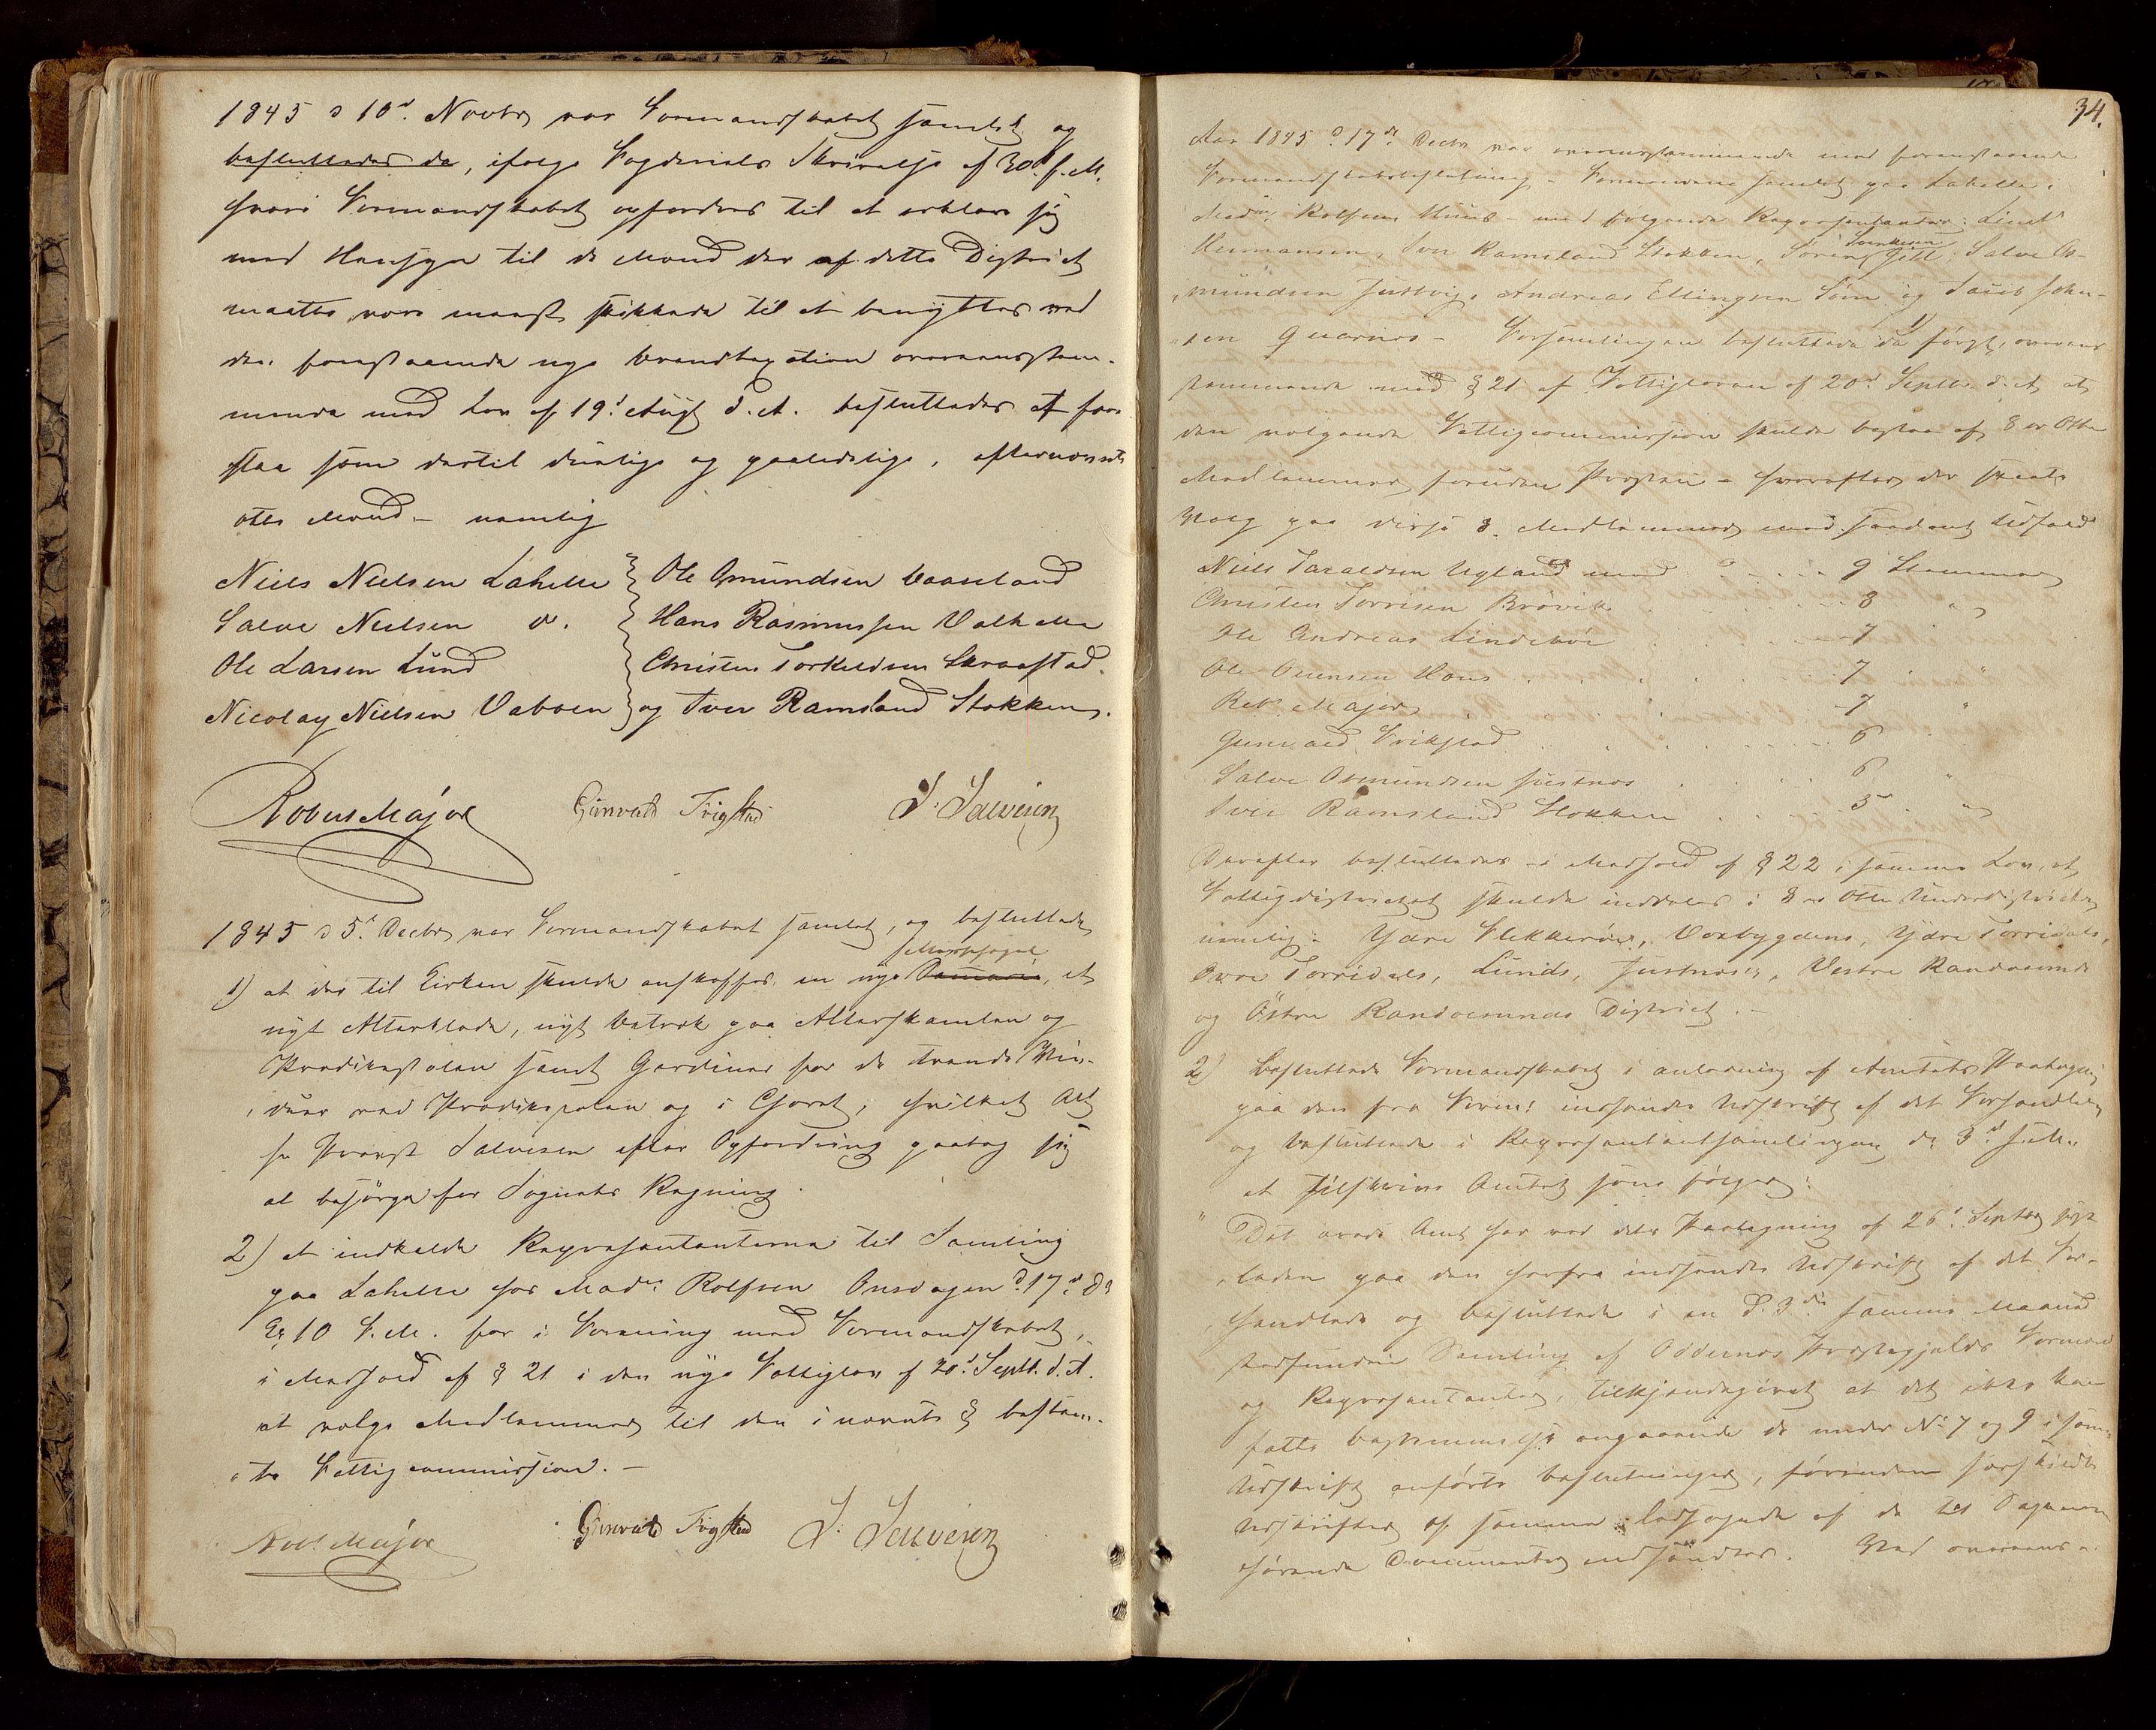 1845 d 10d. Novbr var Formandskabet samlet og
besluttedes da, ifølge Fogderiets Skrivelse af 30d f. M.
hvori Formandskabet opfordres til at erklære sig
med Hensyn til de Mænd der af dette District
maatte være meest skikkede til at benyttes ved
den forestaaende nye Brandtaxation overeensstem-
mende med Lov af 19d Augt d. A. besluttedes at fore-
slaa som dertil duelige og paalidelige, efternævnte
otte Mænd – nemlig
Niels Nielsen Lahelle
Salve Nielsen do.
Ole Larsen Lund
Nicolay Nielsen Vaboen
Ole Gmundsen Baaseland
Hans Rasmussen Valhelle
Christen Torkildsen Straastad.
og Iver Ramsland Stokken.
Robert Major Gunvald Frigstad S. Salvesen
1845 d 5d. Decbr var Formandskabet samlet, og besluttede
Messehagel
1) at der til Kirken skulde anskaffes en nye , et
nyt Alterklæde, nyt Betræk paa Alterskamlen og
Prædikestolen samt Gardiner for de trende Vin-
duer ved Prædikestolen og i Choret, hvilket Alt
hr Provst Salvesen efter Opfordring paatog sig
at besørge for Sognets Regning.
2) at indkalde Repræsentanterne til Samling
paa Lahelle hos Made Rolfsen Onsdagen d. 17d ds
Kl 10 F.M. for i Forening med Formandskabet,
i Medhold af § 21 i den nye Fattiglov af 20d. Septb. d. A.
at vælge Medlemmer til den i nævnte § bestem-
te Fattigcommission. –
Robt Major Gunvald Frigstad S. Salvesen
34.
Aar 1845 d. 17de Decbr var overeensstemmende med foranstaaende
Formandskabsbeslutning – Formændene samlet paa Lahelle i
Madme Rolfsens Huus – med følgende Repræsentanter: Lieut
Svenksen
Hermansen, Iver Ramsland Stokken, Søren Gill, Salve As-
mundsen Justvig, Andreas Ellingsen Søm og Jacob John-
sen Quarnes – Forsamlingen besluttede da først, overeens-
stemmende med § 21 af Fattigloven af 20d Septbr. d. A, at
den vælgende Fattigcommission skulde bestaae af 8 er Otte
Medlemmer foruden Præsten – hvorefter der skeete
Valg paa disse 8 Medlemmer med saadant Udfald
Niels Taraldsen Ugland med 9 Stemmer
Christen Torrisen Brøvik 8 "
Ole Andreas Lindebøe 7
Ole Ouensen Haus 7 "
Robt Major 7 "
Gunvald Frikstad 6
Salve Osmundsen Justnes 6 "
Iver Ramsland Stokken 5 "
Derefter besluttedes – i Medhold af § 22 i samme Lov, at
Fattigdistrictet skulde inddeles i 8 er Otte Underdistricter
nemlig: Ydre Flekkerøe, Voxbygdens, Ydre Torridals,
Øvre Torridals, Lunds, Justnes, Vestre Randøesunds
og Østre Randøesunds District. –
2) Besluttede Formandskabet i anledning af Amtets Paategning
paa den fra Form: indsendte Udskrift af det Forhandlede
og besluttede i Repræsentantsamlingen de 3d f. M.
at tilskrive Amtet som følger:
" Det ærede Amt har ved dets Paategning af 26d. Septbr sidst-
leden paa den herfra indsendte Udskrift af det For-
handlede og besluttede i en d. 3die samme Maaned
stedfunden Samling af Oddernes Præstegjelds Formænd
og Repræsentanter, tilkjendegivet at det ikke kan
fatte bestemmelse angaaende de under No 7 og 9 i samme
Udskrift anførte beslutninger, førinden særskildte
Udskrifter af samme ledsagede af de til Sagerne
hørende Documenter indsendes. Ved overeens-